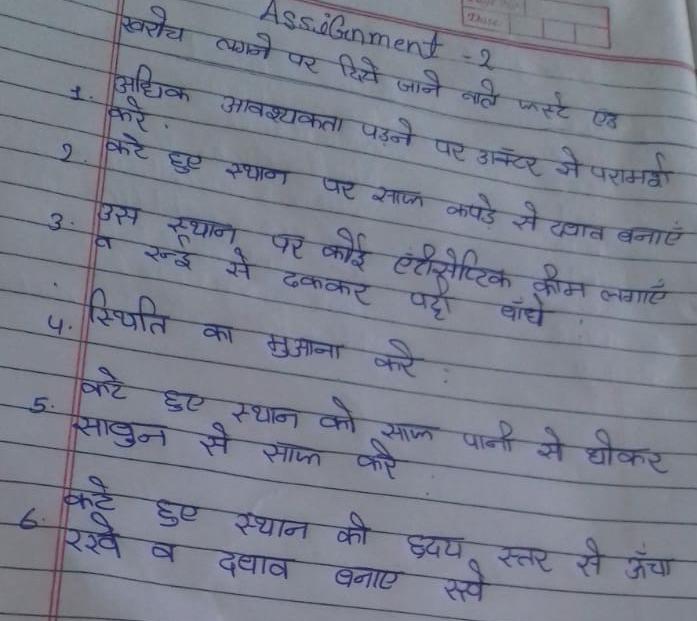 Assignment - 2
Date
खरोच लगने पर दिये जाने वाले फस्टे एड
1. अधिक आवश्यकता पड़ने पर डाक्टर से परामर्श
करे.
2. कटे हुए स्थान पर साफ कपड़े से दबाव बनाएं
3. उस स्थान पर कोई एंटीसेप्टिक क्रीम लगाएं
व रुई से ढककर पट्टी बाँधे.
4. स्थिति का मुआना करे.
5. कटे हुए स्थान को साफ पानी से धोकर
साबुन से साफ करे
6. कटे हुए स्थान को हृदय स्तर से ऊँचा
रखे व दबाव बनाए रखे